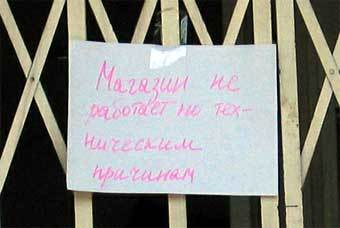 Магазин не
работает по тех-
ническим
причинам